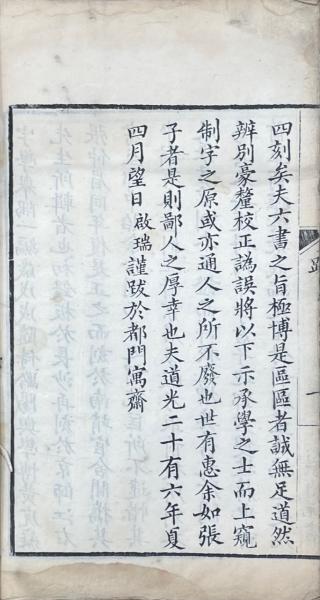 四刻矣夫六書之旨極博是區區者誠無足道然
辨別豪釐校正譌誤將以下示承學之士而上窺
制字之原或亦通人之所不廢也世有惠余如張
子者是則鄙人之厚幸也夫道光二十有六年夏
四月望日啟瑞謹跋於都門寓齋